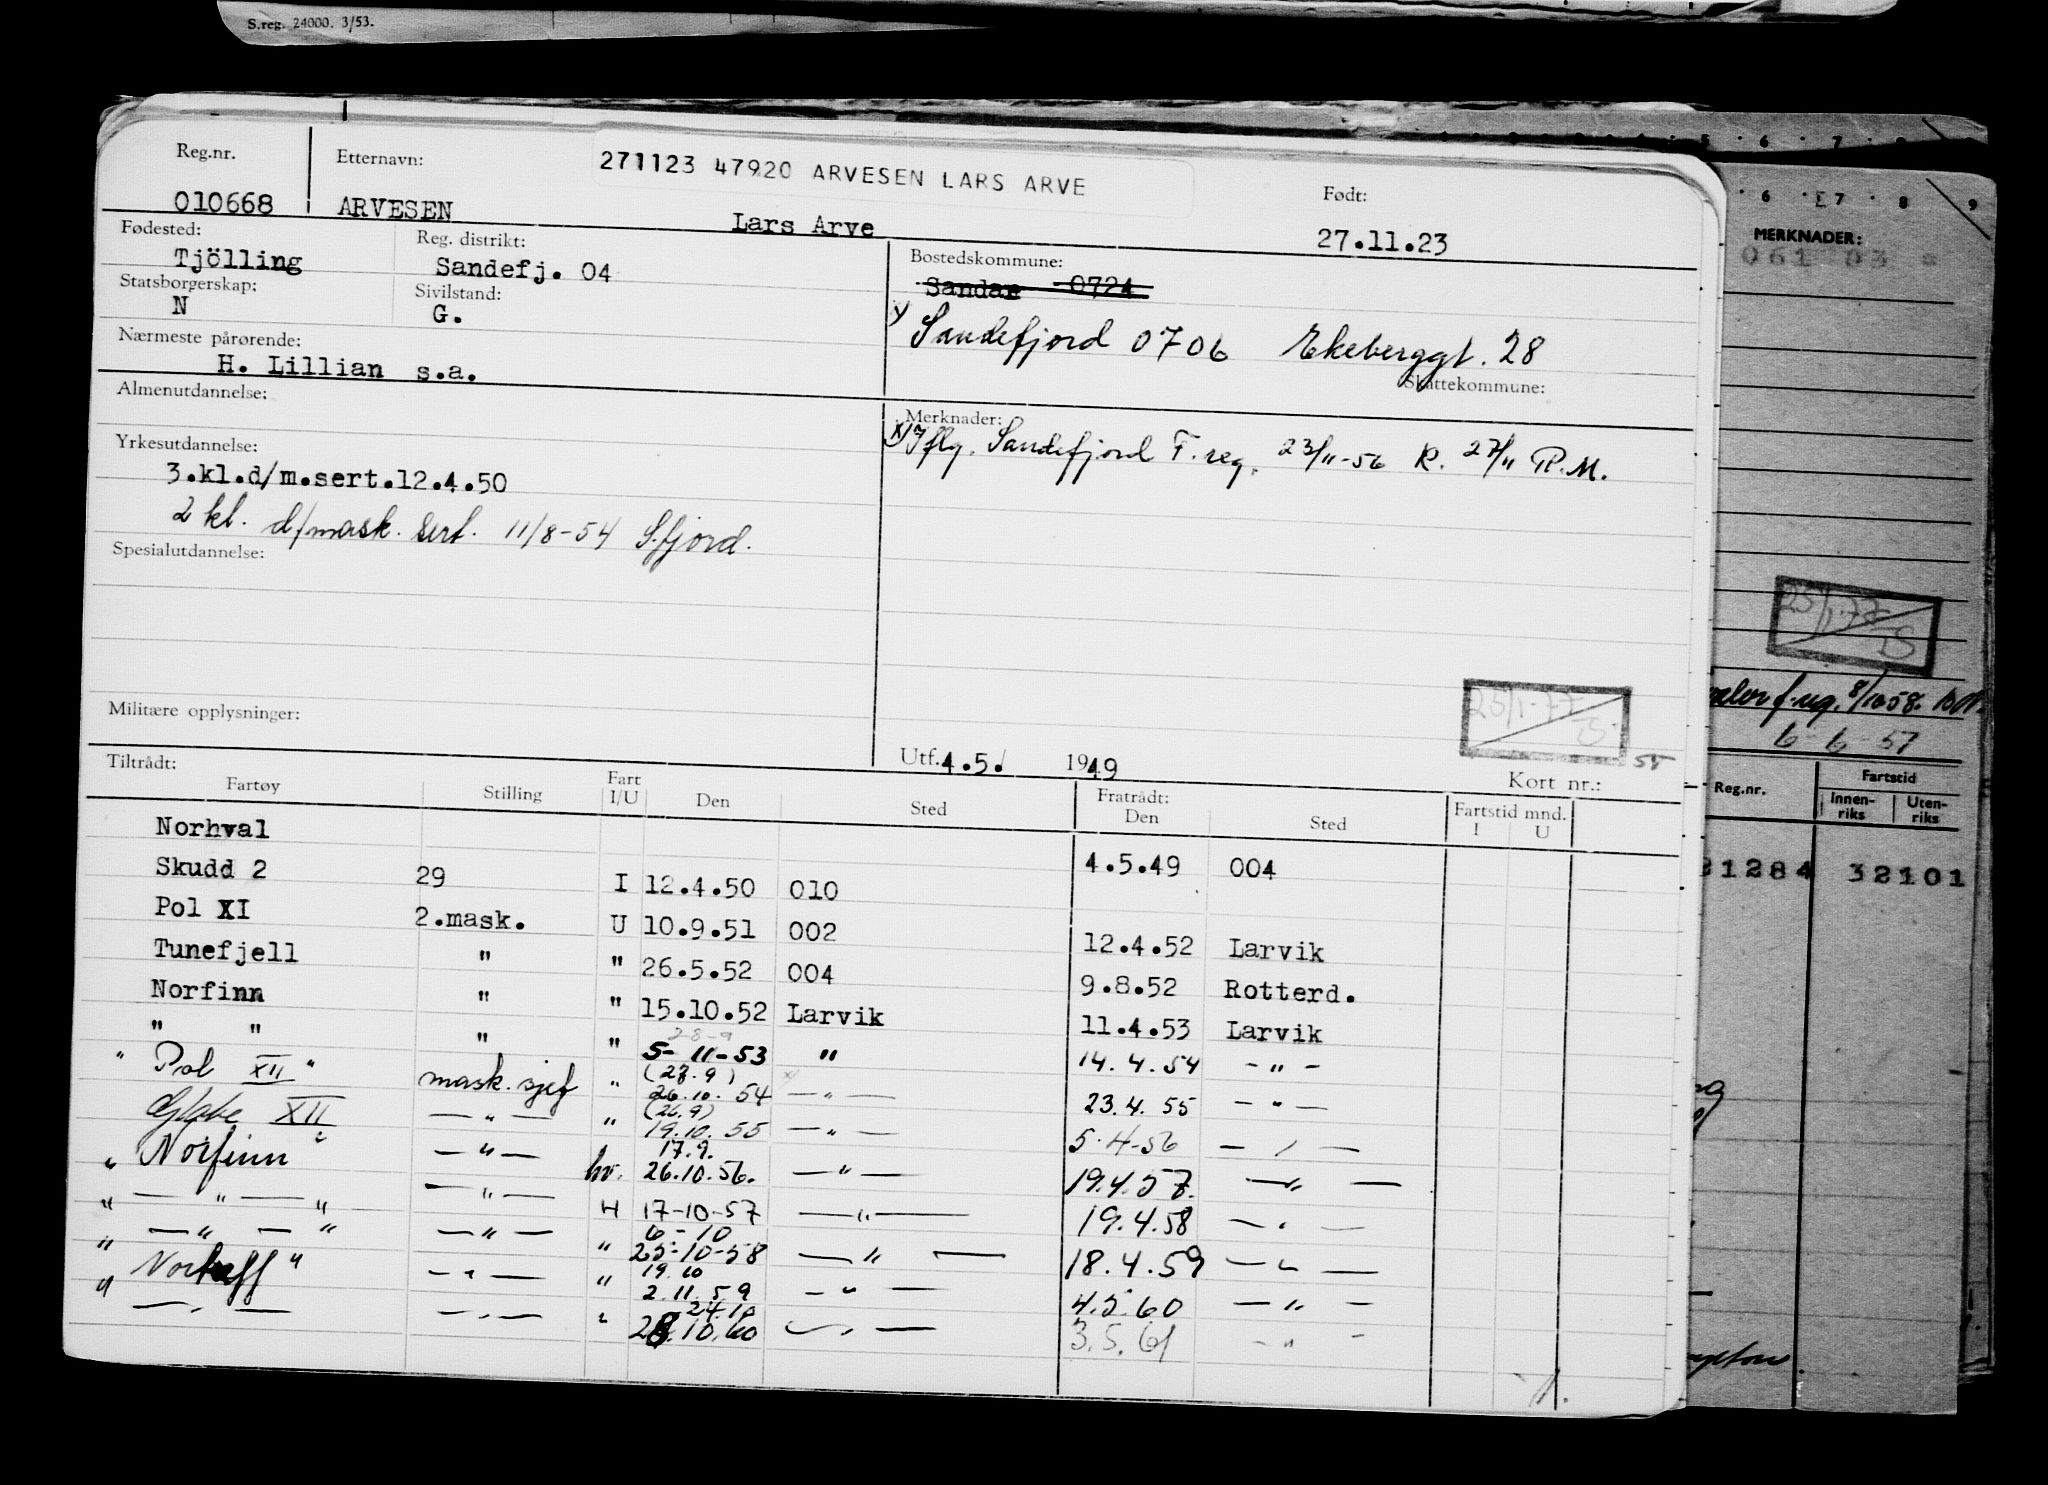 S.reg. 24000. 3/53.
271123 47920 ARVESEN LARS ARVE
Reg.nr. Etternavn: Født:
010668 ARVESEN Lars Arve 27.11.23
Fødested: Reg. distrikt: Bostedskommune:
Tjölling Sandefj. 04 Sandar 0724
Statsborgerskap: Sivilstand:
N G.
Sandefjord 0706 Ekeberggt. 28
Nærmeste pårørende:
H. Lillian s.a.
Skattekommune:
Almenutdannelse: Merknader:
x) Iflg. Sandefjord F. reg. 23/11-56 R. 27/11 R.M.
Yrkesutdannelse:
3.kl.d/m.sert.12.4.50
2 kl. d/mask. sert. 11/8-54 S.fjord.
Spesialutdannelse:
25/1-77
Militære opplysninger:
Utf. 4.5. 1949
55
Tiltrådt: Kort nr.:
Fartøy Stilling Fart I/U Den Sted Fratrådt: Den Sted Fartstid mnd. I U
Norhval 4.5.49 004
Skudd 2 29 I 12.4.50 010
Pol XI 2.mask. U 10.9.51 002 12.4.52 Larvik
Tunefjell " " 26.5.52 004 9.8.52 Rotterd.
Norfinn " " 15.10.52 Larvik 11.4.53 Larvik
" " " " 28-9 5-11-53 " 14.4.54 - " -
" Pol XII " mask. sjef " (27.9) 26.10.54 — " — 23.4.55 — " —
Globe XII — " — " (26.9) 19.10.55 — " — 5.4-56 — " —
" Norfinn " — " — hv. 17.9. 26.10.56. — " — 19.4.57. — " —
" — " — " — " — H 17-10-57 — " — 19.4.58 — " —
" — " — " — " — " 6-10 25-10-58 — " — 18.4.59 — " —
" Norkaff " — " — " 19.10 2.11.59 — " — 4.5.60 — " —
" — " — — " — " 24.10 28.10.60 — " — 3.5.61 - " -
5 6 7 8
6 7 8 9
MERKNADER:
061 03
25/1-77
f.reg. 8/10 58.
6-6-57
Reg.nr. Fartstid
Innen-riks Uten-riks
21284 32101